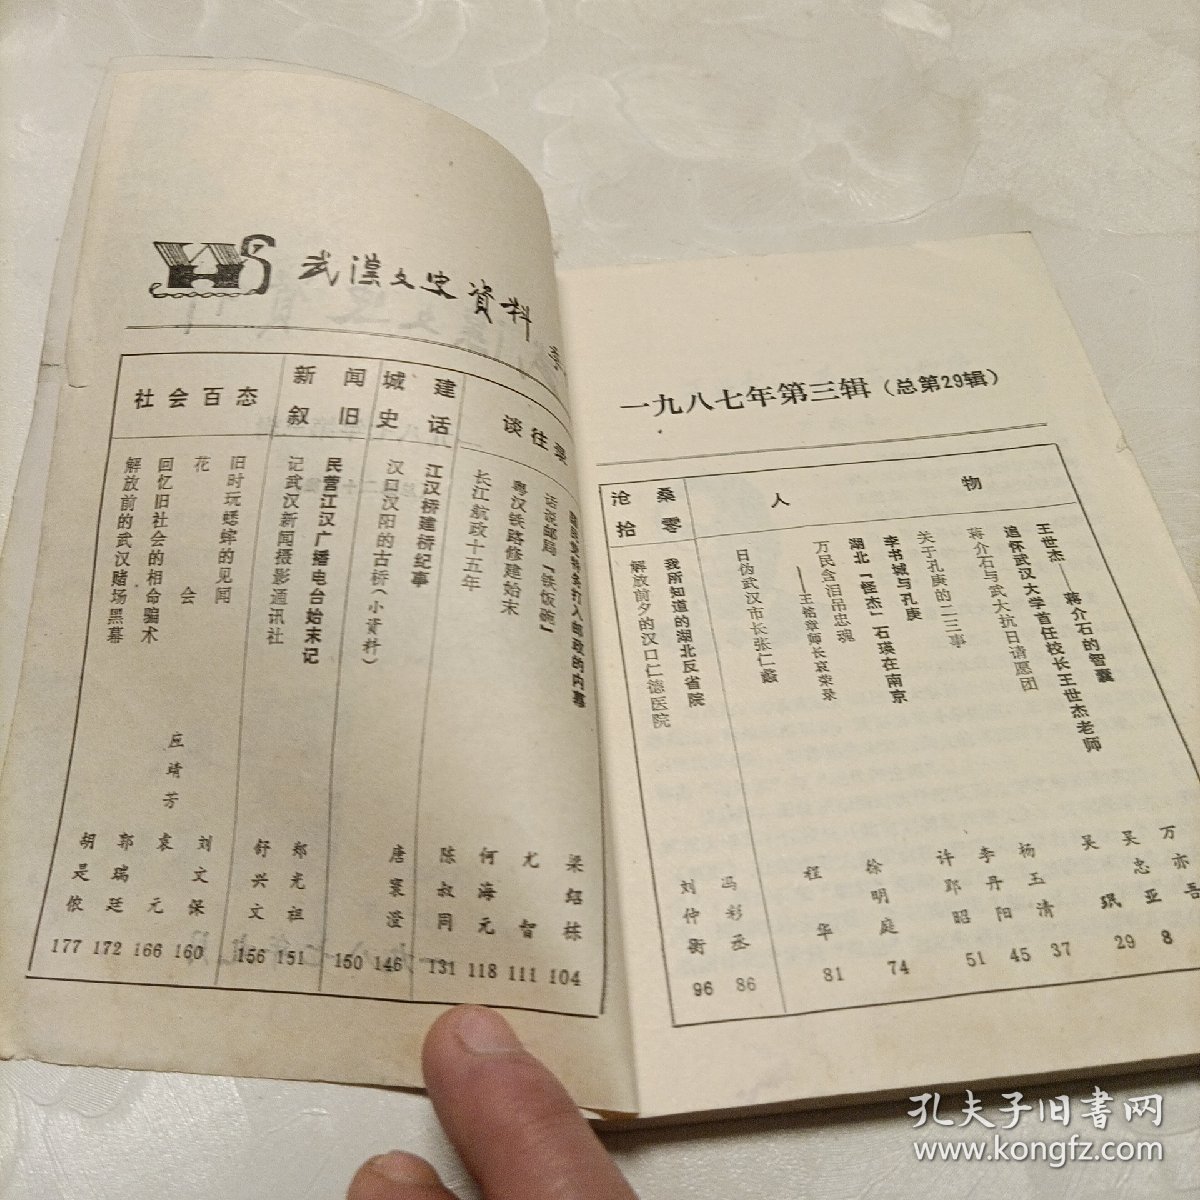 武漢文史資料
一九八七年第三辑（总第29辑）
人 物
王世杰——蒋介石的智囊
万亦吾 8
追怀武汉大学首任校长王世杰老师
吴忠亚 29
蒋介石与武大抗日请愿团
吴珉 37
关于孔庚的二三事
杨玉清 45
李书城与孔庚
李丹阳 51
湖北「怪杰」石瑛在南京
许郢昭
万民含泪吊忠魂
——王铭章师长哀荣录
徐明庭 74
日伪武汉市长张仁蠡
程华 81
沧桑拾零
我所知道的湖北反省院
冯彩丞 86
解放前夕的汉口仁德医院
刘仲衡 96
谈往录
打入邮政的内幕
梁绍栋 104
话说邮局「铁饭碗」
尤智 111
粤汉铁路修建始末
何海元 118
长江航政十五年
陈叔同 131
城建史话
江汉桥建桥纪事
唐寰澄 146
汉口汉阳的古桥（小资料）
150
新闻叙旧
民营江汉广播电台始末记
郑光祖 151
记武汉新闻摄影通讯社
舒兴文 156
社会百态
旧时玩蟋蟀的见闻
刘文保 160
花会
应靖芳
袁元 166
回忆旧社会的相命骗术
郭瑞廷 172
解放前的武汉赌场黑幕
胡是侬 177
孔夫子旧书网
www.kongfz.com